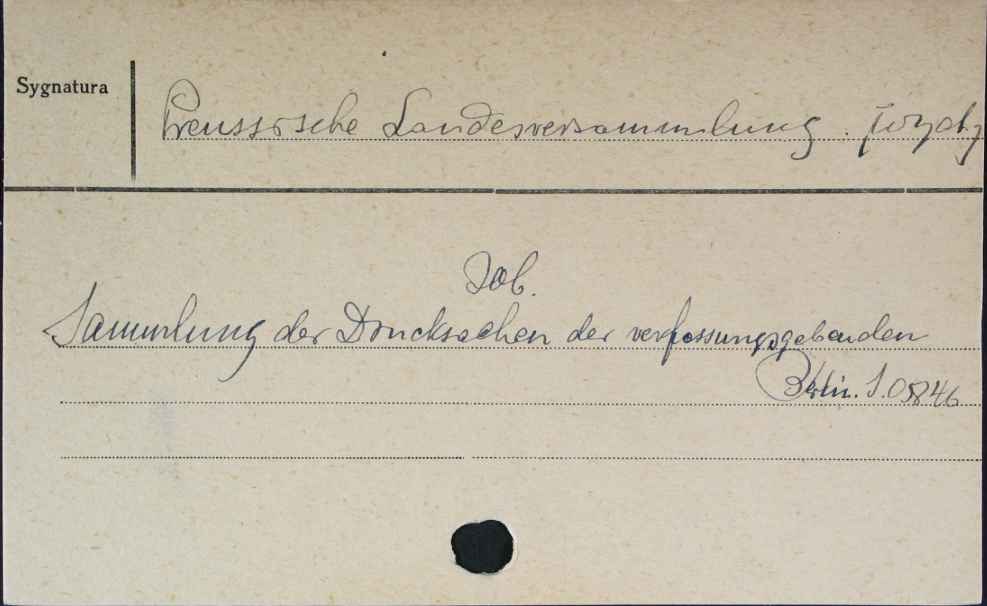 Sygnatura
Preussische Landesversammlung.
Zob.
Sammlung der Drucksachen der verfassungsgebenden
Berlin. S.05846